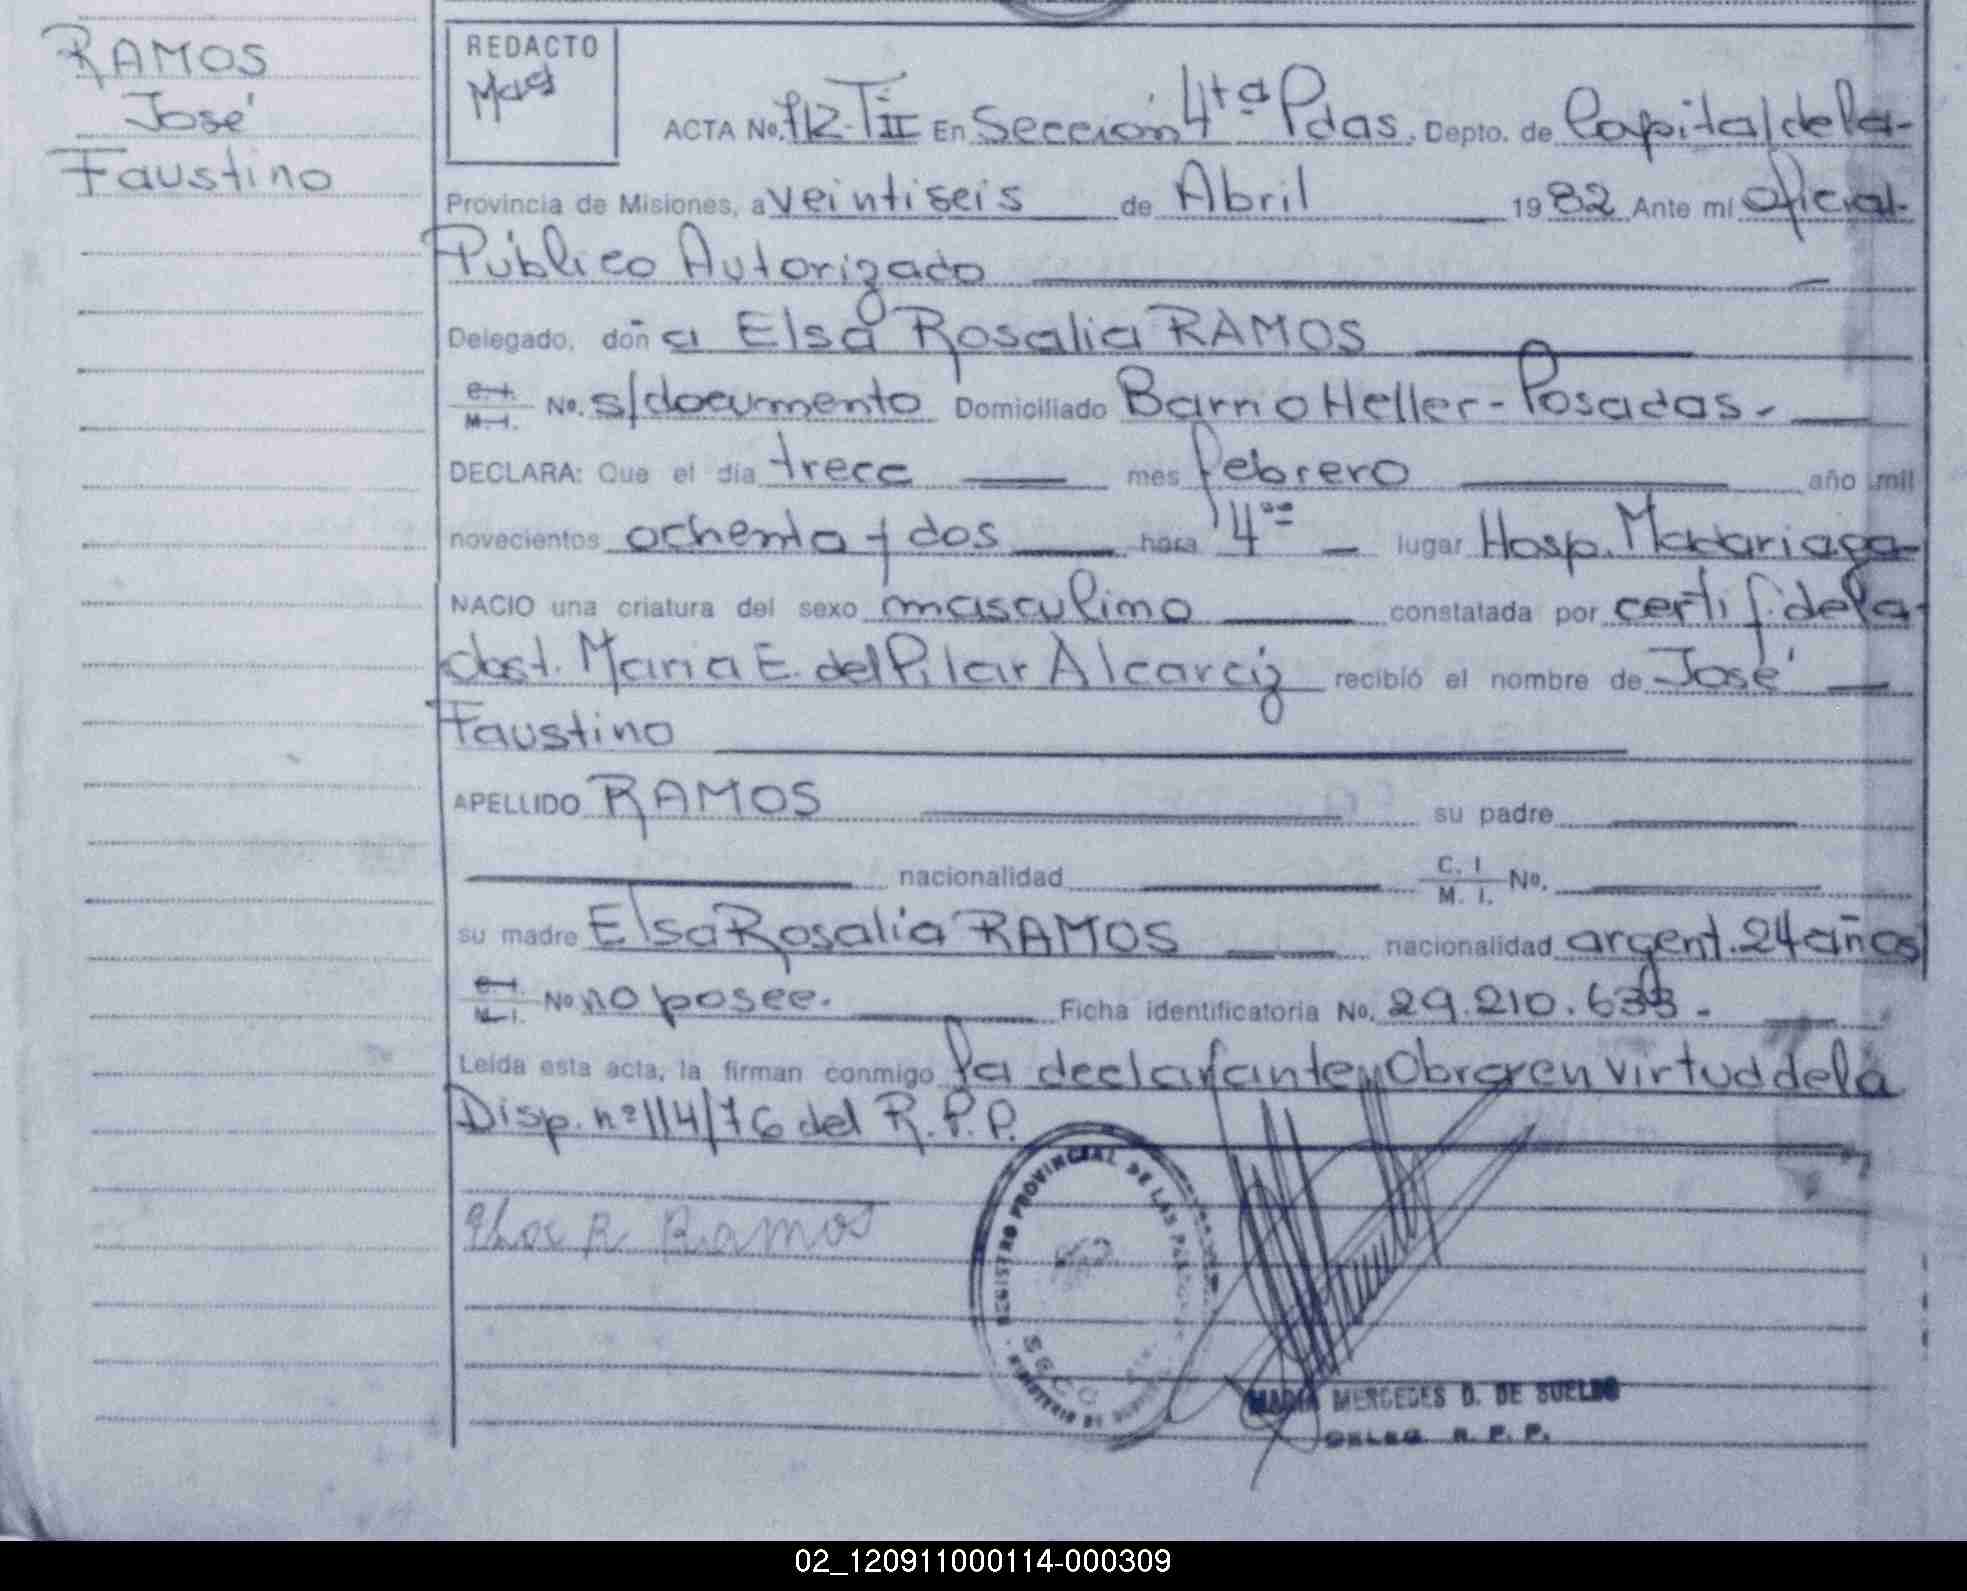 RAMOS
José
Faustino
REDACTO
ACTA No. 712-TII En Sección 4ta Pdas. Depto. de Capital de la-
Provincia de Misiones, a veintiseis de Abril 1982 Ante mí oficial-
Público Autorizado
Delegado, doña Elsa Rosalia RAMOS
C.I. M.I. No. s/documento Domiciliado Barrio Heller-Posadas-
DECLARA: Que el día trece mes febrero año mil
novecientos ochenta y dos hora 4 lugar Hosp. Madariaga
NACIO una criatura del sexo masculino constatada por certif. de la-
obst. Maria E. del Pilar Alcaráz recibió el nombre de José
Faustino
APELLIDO RAMOS su padre
nacionalidad C. I. M. I. No.
su madre Elsa Rosalia RAMOS nacionalidad argent. 24 años
C.I. M.I. No no posee. Ficha identificatoria No. 29.210.633.-
Leída esta acta, la firman conmigo la declarante, Obrar en virtud de la
Disp. nº 114/76 del R.P.P.
R Ramos
REGISTRO PROVINCIAL DE LAS
MARIA MERCEDES D. DE SUELDO
DELEG. R. P. P.
02_120911000114-000309